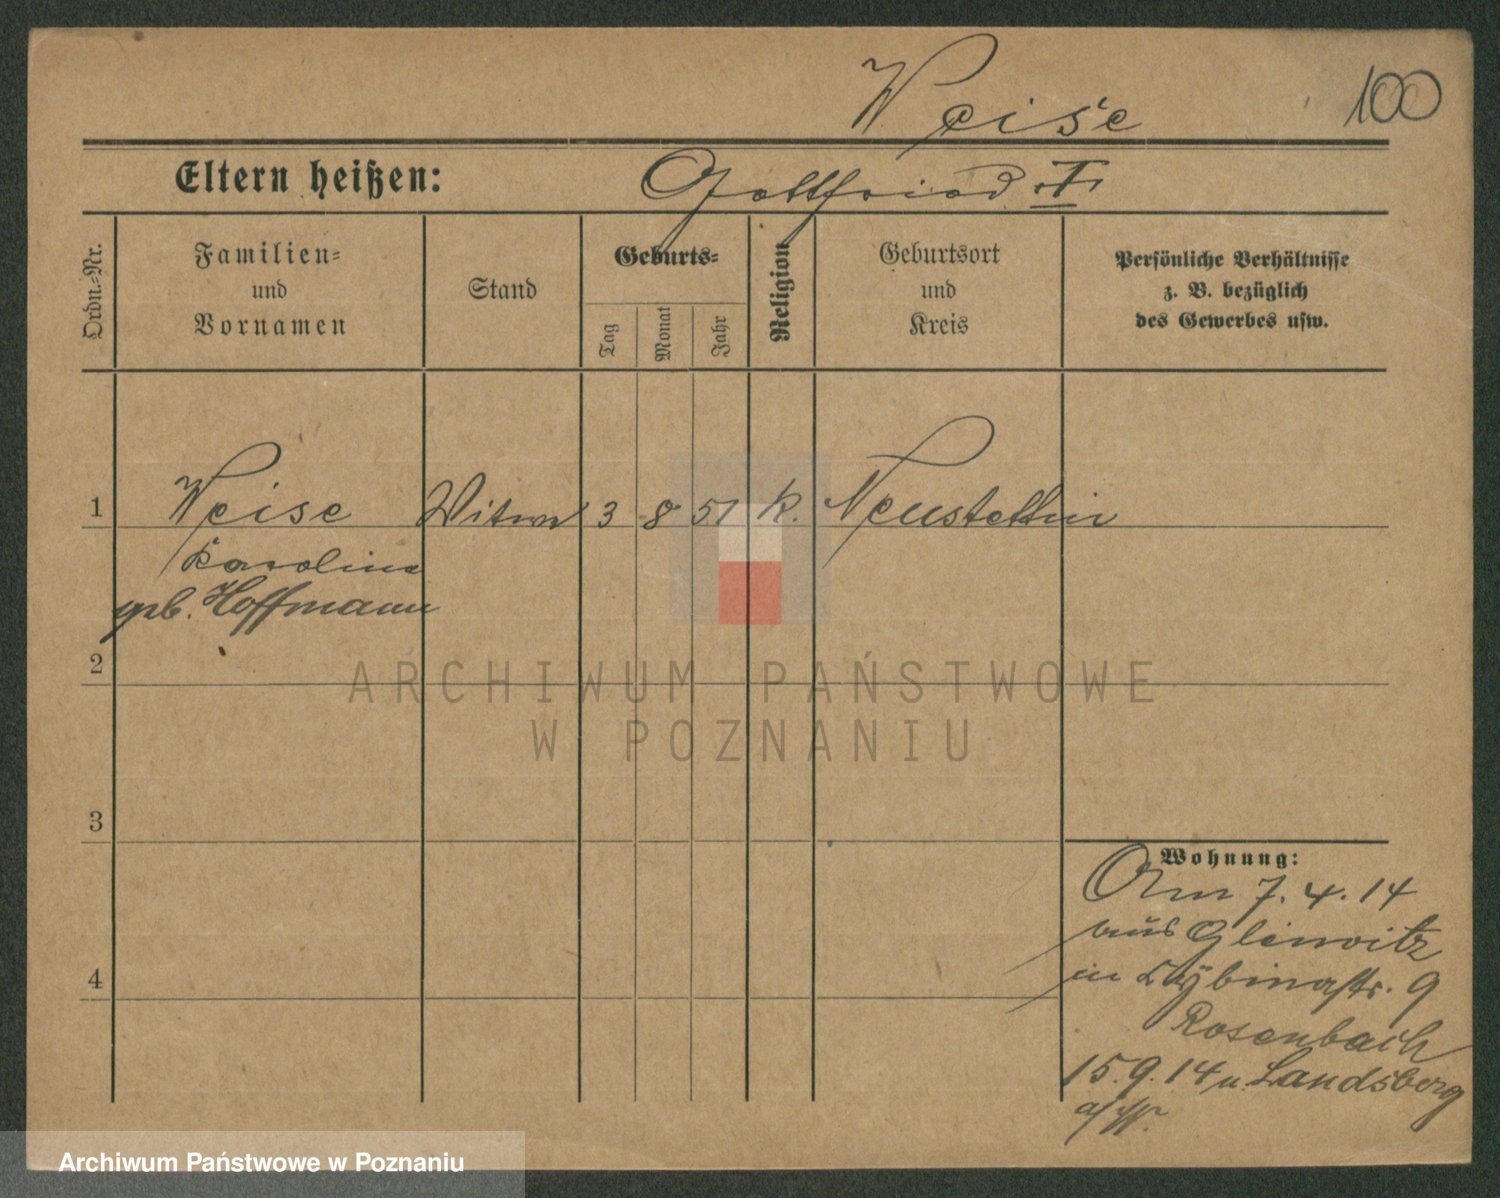 Weise
100
Eltern heißen: Gottfried I
Ordn.-Nr.
Familien-
und
Vornamen
Stand
Geburts-
Tag
Monat
Jahr
Religion
Geburtsort
und
Kreis
Persönliche Verhältnisse
z. B. bezüglich
des Gewerbes usw.
1 Weise Witwe 3 8 51 k. Neustettin
Karoline
geb. Hoffmann
2
ARCHIWUM PAŃSTWOWE
W POZNANIU
3
Wohnung:
Am 7. 4. 14
aus Gleiwitz
4
in 9
Rosenbach
15. 9. 14 n. Landsberg
a/W.
Archiwum Państwowe w Poznaniu